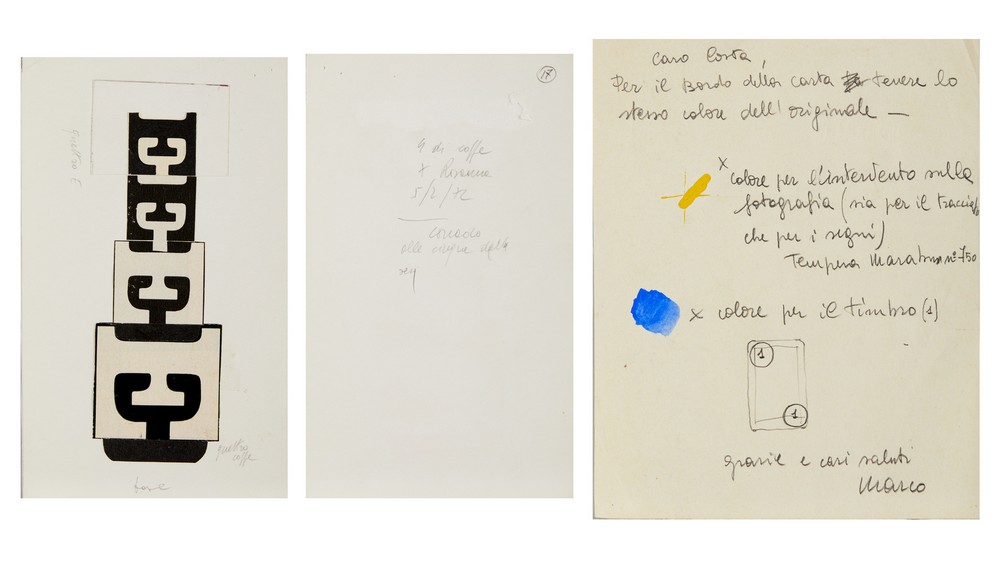 C
C
C
C
quattro C
quattro
coffe
17
4 di coffe
x Rosanna
5/2/72
corredo
alle
caro Costa,
Per il Bordo della carta tenere lo
stesso colore dell'originale —
x colore per l'intervento sulla
fotografia (sia per il tracciato
che per i segni)
Tempera Marabu n° 750
x colore per il timbro (1)
1
1
grazie e cari saluti
Marco